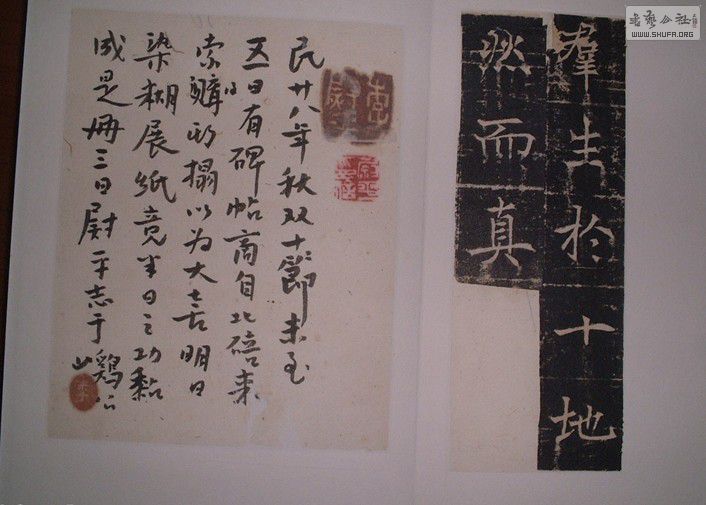 羣生於十地
然而真
民廿八年秋双十節未至
五日有碑帖商自北碚来
索購旧搨以为大喜明日
染糊展紙竟半日之功黏
成是册三日尉平志于
WWW.SHUFA.ORG